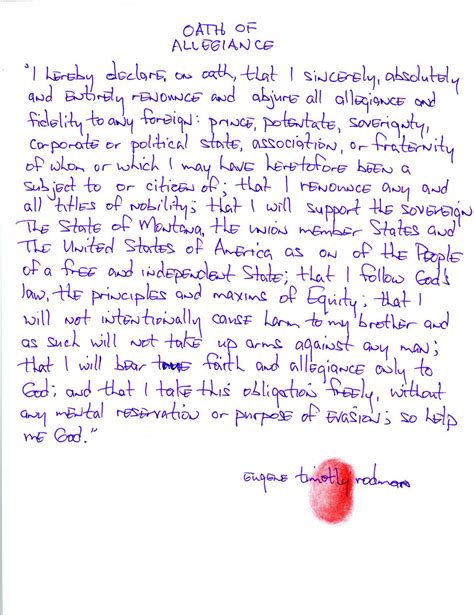 OATH OF
ALLEGIANCE
"I hereby declare, on oath, that I sincerely, absolutely
and entirely renounce and abjure all allegiance and
fidelity to any foreign: prince, potentate, soverignty,
corporate or political state, association, or fraternity
of whom or which I may have heretofore been a
subject to or citizen of; that I renounce any and
all titles of nobility; that I will support the sovereign
The State of Montana, the union member States and
The United States of America as on of the People
of a free and independent State; that I follow God's
law, the principles and maxims of Equity; that I
will not intentionally cause harm to my brother and
as such will not take up arms against any man;
that I will bear true faith and allegiance only to
God; and that I take this obligation freely, without
any mental reservation or purpose of evasion; so help
me God."
eugene timothy